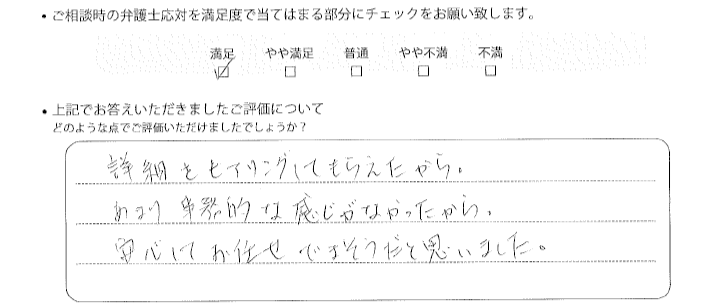 ・ご相談時の弁護士応対を満足度で当てはまる部分にチェックをお願い致します。
満足 やや満足 普通 やや不満 不満
☑ □ □ □ □
・上記でお答えいただきましたご評価について
どのような点でご評価いただけましたでしょうか?
詳細をヒイリングしてもらえたから。
あまり事務的な感じがなかったから、
安心してお任せできそうだと思いました。